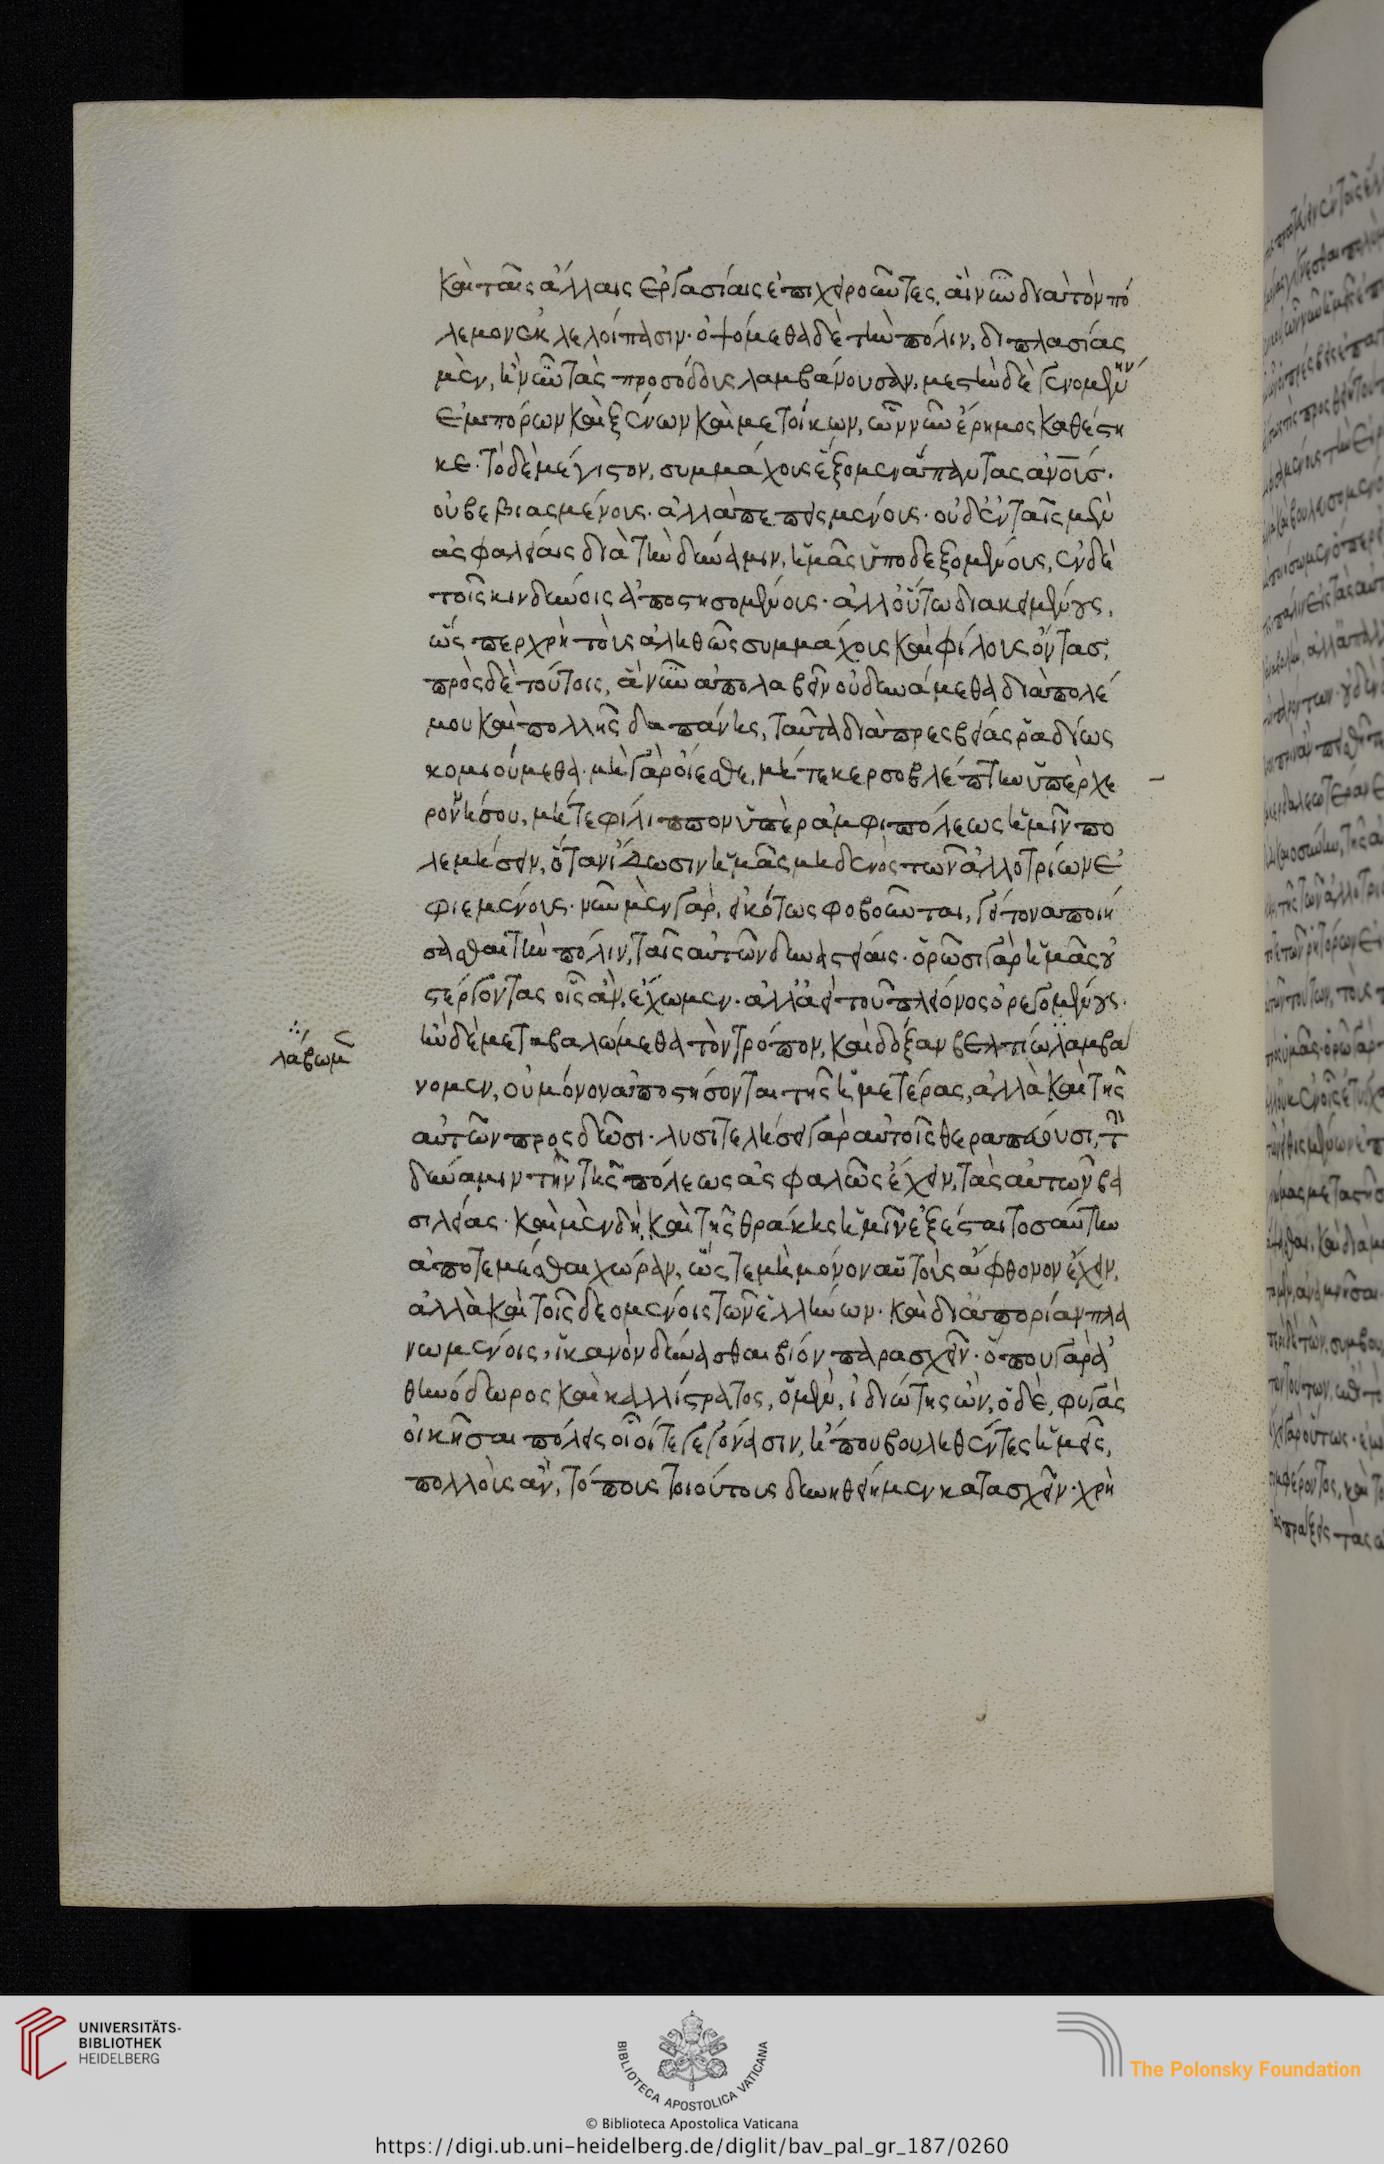 καὶ ταῖς ἄλλαις ἐργασίαις ἐπιχειροῦντες, αἳ νῦν διὰ τὸν πό
λεμον ἐκλελοίπασιν· ὀψόμεθα δὲ τὴν πόλιν, διπλασίας
μὲν, ἢ νῦν τὰς προσόδους λαμβάνουσαν, μεστὴν δὲ γενομένην
ἐμπόρων καὶ ξένων καὶ μετοίκων, ὧν νῦν ἐρήμος καθέστη
κε· τὸ δὲ μέγιστον, συμμάχους ἕξομεν ἅπαντας ἀνους·
οὐ βεβιασμένους· ἀλλὰ πεπεισμένους· οὐδ' ἐν ταῖς μὲν
ἀσφαλείαις διὰ τὴν δύναμιν, ἡμᾶς ὑποδεξομένους, ἐν δὲ
τοῖς κινδύνοις ἀποστησομένους· ἀλλ' οὕτω διακειμένους,
ὥσπερ χρὴ τοὺς ἀληθῶς συμμάχους καὶ φίλους ὄντας·
πρὸς δὲ τούτοις, ἃ νῦν ἀπολαβεῖν οὐ δυνάμεθα διὰ πολέ
μου καὶ πολλῆς δαπάνης, ταῦτα διὰ πρεσβείας ῥαδίως
κομιούμεθα· μὴ γὰρ οἴεσθε, μήτε κερσοβλέπτην ὑπὲρ χε
ρονήσου, μήτε φίλιππον ὑπὲρ ἀμφιπόλεως ἡμῖν πο
λεμήσειν, ὅταν ἴδωσιν ἡμᾶς μηδενὸς τῶν ἀλλοτρίων ἐ
φιεμένους· νῦν μὲν γὰρ, εἰκότως φοβοῦνται, γείτονα ποιή
σασθαι τὴν πόλιν, ταῖς αὐτῶν δυναστείαις· ὁρῶσι γὰρ ἡμᾶς οὐ
στέργοντας οἷς ἂν, ἔχωμεν· ἀλλ' ἀεὶ τοῦ πλείονος ὀρεγομένους·
ἢν δὲ μεταβαλώμεθα τὸν τρόπον, καὶ δόξαν βελτίω λαμβά
λάβωμεν
νομεν, οὐ μόνον ἀποστήσονται τῆς ἡμετέρας, ἀλλὰ καὶ τῆς
αὐτῶν προσδῶσι· λυσιτελήσει γὰρ αὐτοῖς θεραπεύουσι, τὴν
δύναμιν τὴν τῆς πόλεως ἀσφαλῶς ἔχειν, τὰς αὐτῶν βα
σιλείας· καὶ μὲν δὴ, καὶ τῆς θράκης ἡμῖν ἐξέσται τοσαύτην
ἀποτεμέσθαι χώραν, ὥστε μὴ μόνον αὐτοὺς ἄφθονον ἔχειν,
ἀλλὰ καὶ τοῖς δεομένοις τῶν ἑλλήνων· καὶ δι' ἀπορίαν πλα
νωμένοις, ἱκανὸν δύνασθαι βίον παρασχεῖν· ὅπου γὰρ ἀ
θηνόδωρος καὶ καλλίστρατος, ὁ μὲν, ἰδιώτης ὢν, ὁ δὲ, φυγὰς
οἰκῆσαι πόλεις οἷοί τε γεγόνασιν, ἦπου βουληθέντες ἡμεῖς,
πολλοὺς ἂν, τόπους τοιούτους δυνηθείημεν κατασχεῖν· χρὴ
UNIVERSITÄTS-
BIBLIOTHEK
HEIDELBERG
BIBLIOTECA APOSTOLICA VATICANA
The Polonsky Foundation
© Biblioteca Apostolica Vaticana
https://digi.ub.uni-heidelberg.de/diglit/bav_pal_gr_187/0260